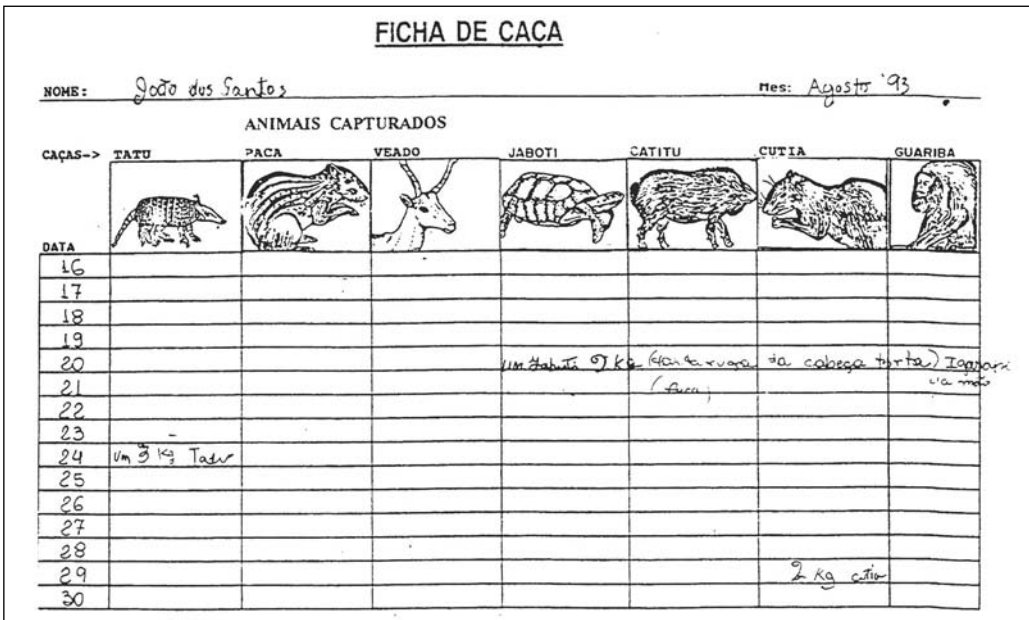 FICHA DE CAÇA
NOME: João dos Santos Mes: Agosto '93
ANIMAIS CAPTURADOS
CAÇAS-> TATU PACA VEADO JABOTI CATITU CUTIA GUARIBA
DATA
16
17
18
19
20 um Jabuti 2 Kg (tartaruga da cabeça torta) Igarapé
21
22
23
24 Um 3 Kg Tatu
25
26
27
28
29 2 Kg cutia
30